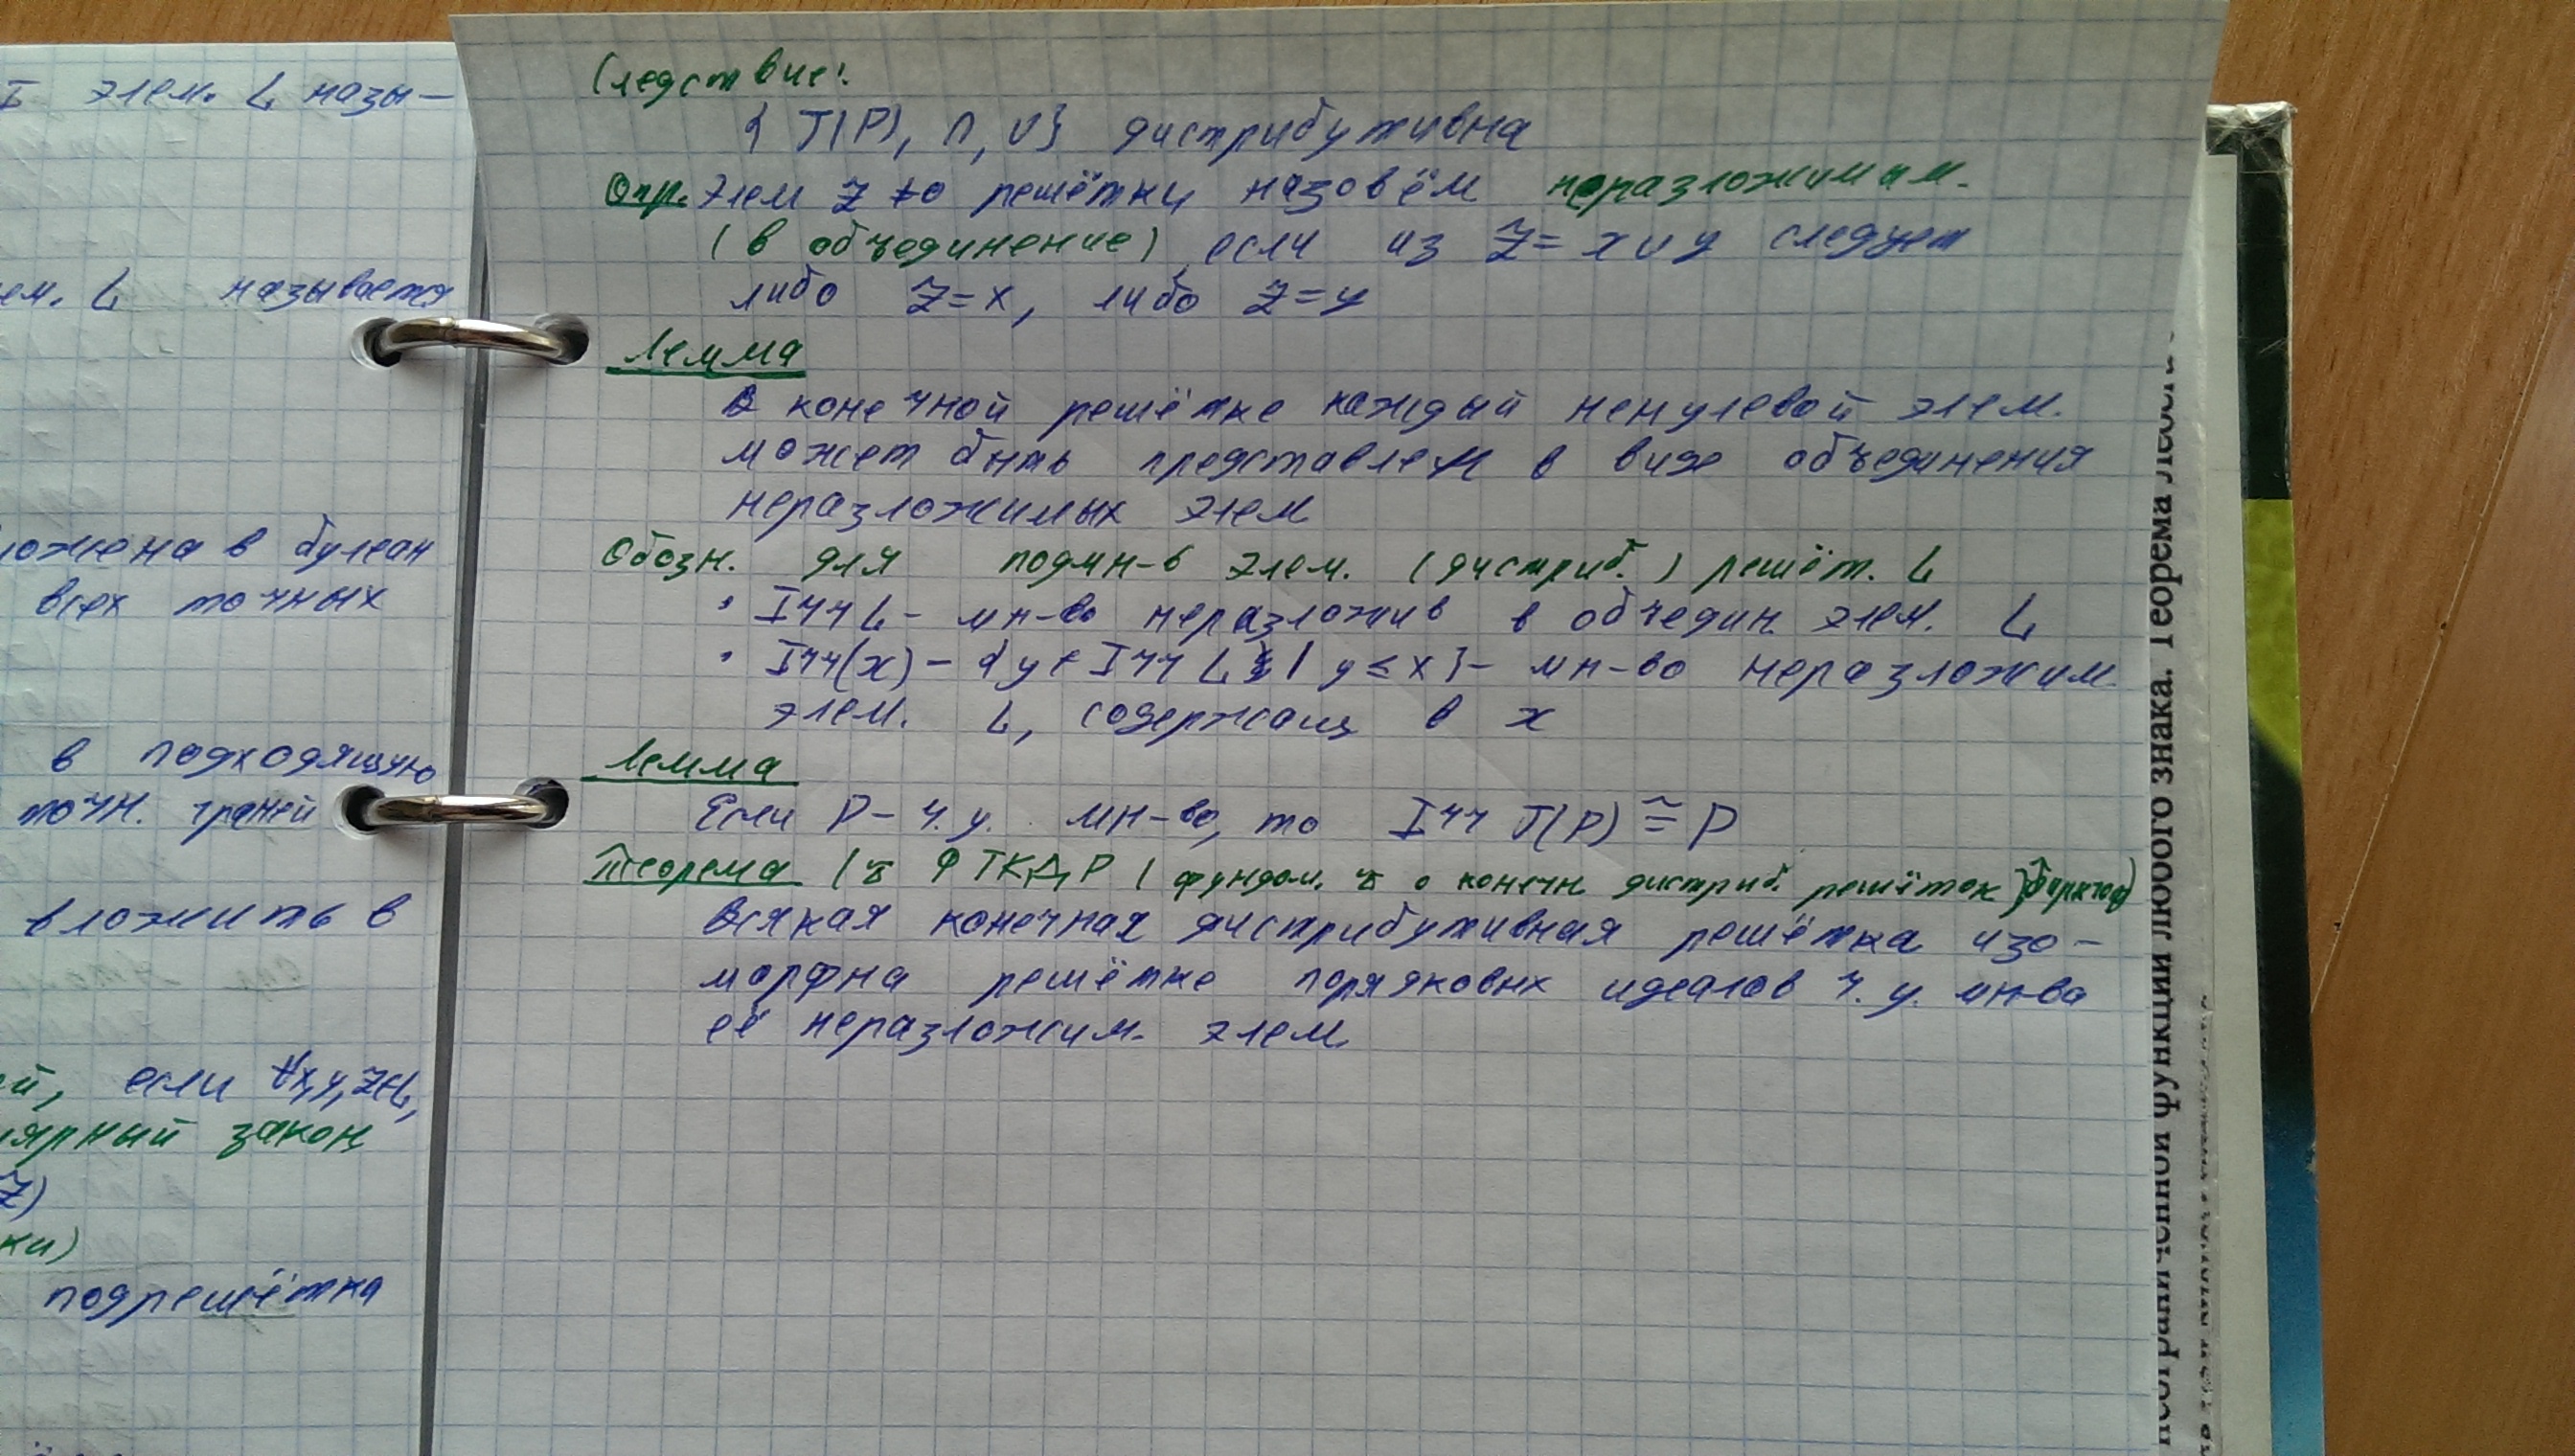 I элем. L назы-
ем. L называется
ложена в булеан
всех точных
в подходящую
точн. граней
вложить в
й, если ∀x,y,z∈L,
лярный закон
z)
ки)
подрешётка
Следствие:
{ J(P), ∩, ∪} дистрибутивна
Опр. Элем z ≠0 решётки назовём неразложимым.
(в объединение), если из z = x∪y следует
либо z=x, либо z=y
Лемма
В конечной решётке каждый ненулевой элем.
может быть представлен в виде объединения
неразложимых элем
Обозн. для подмн-в элем. (дистриб.) решёт. L
• Irr L - мн-во неразложив в объедин. элем. L
• Irr(x) - {y ∈ Irr L | y ≤ x} - мн-во неразложим.
элем. L, содержащ в x
Лемма
Если P - ч.у. мн-во, то Irr J(P) ≅ P
Теорема ( ФТКДР ( фундам. о конечн дистриб. решёток)
Всякая конечная дистрибутивная решётка изо-
морфна решётке порядковых идеалов ч.у. мн-ва
её неразложим. элем.
функции любого знака. Теорема